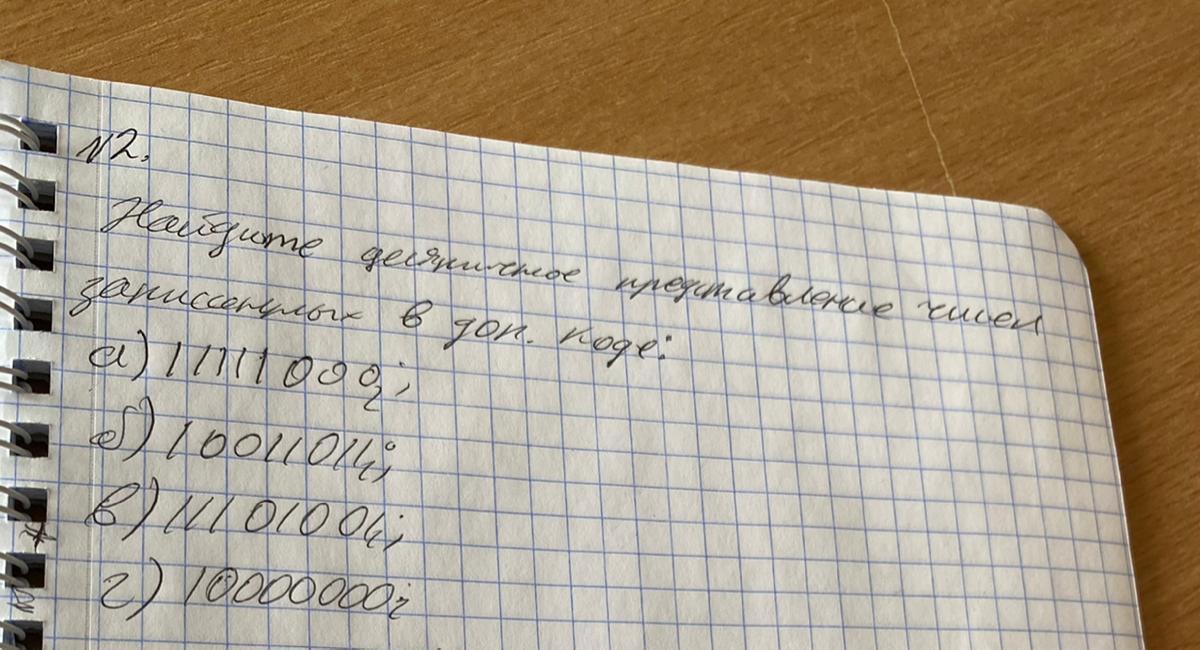 №2.
Найдите десятичное представление чисел
записанных в доп. коде:
а) 11111000;
б) 10011011;
в) 11101001;
г) 10000000;